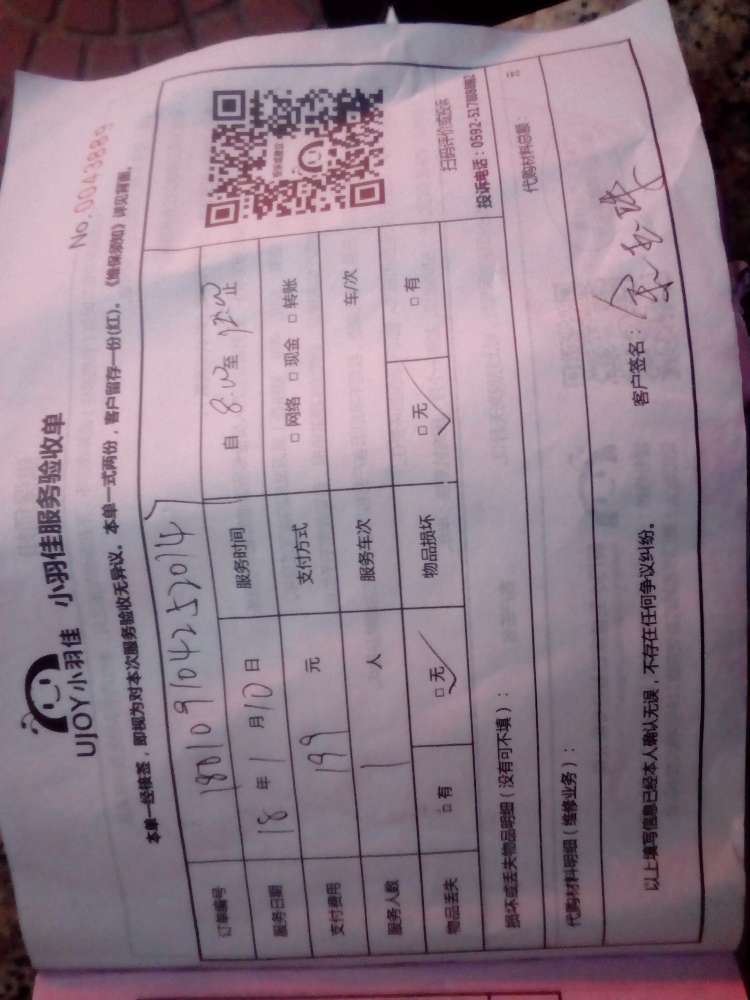 UJOY小羽佳 小羽佳服务验收单
No.0043889
本单一经核签，即视为对本次服务验收无异议。本单一式两份，客户留存一份(红)。《维保须知》详见背面。
订单编号 180109104252014
服务日期 18 年 1 月 10 日 服务时间 自 8:00 至 12:00 止
支付费用 199 元 支付方式 □网络 □现金 □转账
服务人数 1 人 服务车次 车/次
物品丢失 □有 □无 物品损坏 □无 □有
扫码评价或投诉
投诉电话：0592-5178888
损坏或丢失物品明细（没有可不填）：
代购材料明细（维修业务）： 代购材料总额： 元
以上填写信息已经本人确认无误，不存在任何争议纠纷。
客户签名：